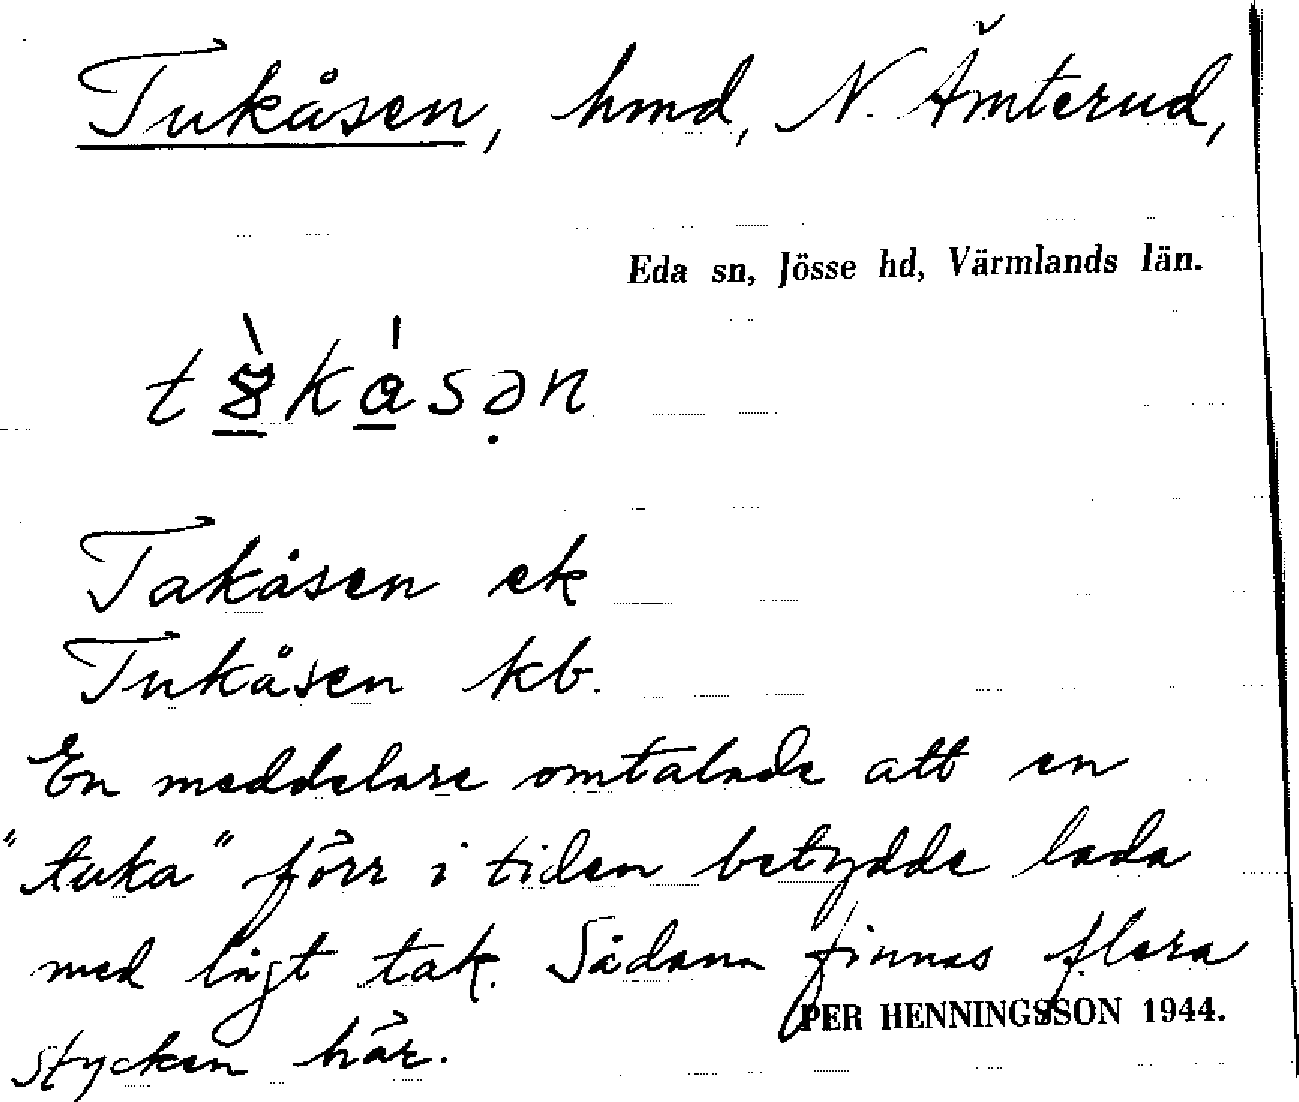 Tukåsen, hmd, N. Ämterud,
Eda sn, Jösse hd, Värmlands län.
Takåsen ek
Tukåsen kb.
En meddelare omtalade att en
"tuka" förr i tiden betydde lada
med lågt tak. Sådana finnas flera
PER HENNINGSSON 1944.
stycken här.